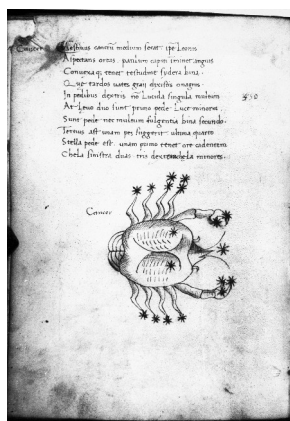 Cancer Aestiuus cancrũ medium serat ipse Leonis
Aspectans ortus. paulum caput iminet anguis
Conuexaq; tenet testudine sydera bina.
Quę tardos uates graij dixistis onagros.
In pedibus dextris nõ Lucida singula multum
At Leuo duo sunt primo pede Luce minores.
Sunt pede nec multum fulgentia bina secundo.
Tertius ast unam suggerit ultima quarto
Stella pede est. unam primo tenet ore cadentem
Chela sinistra duas tris dextra chela minores.
Cancer